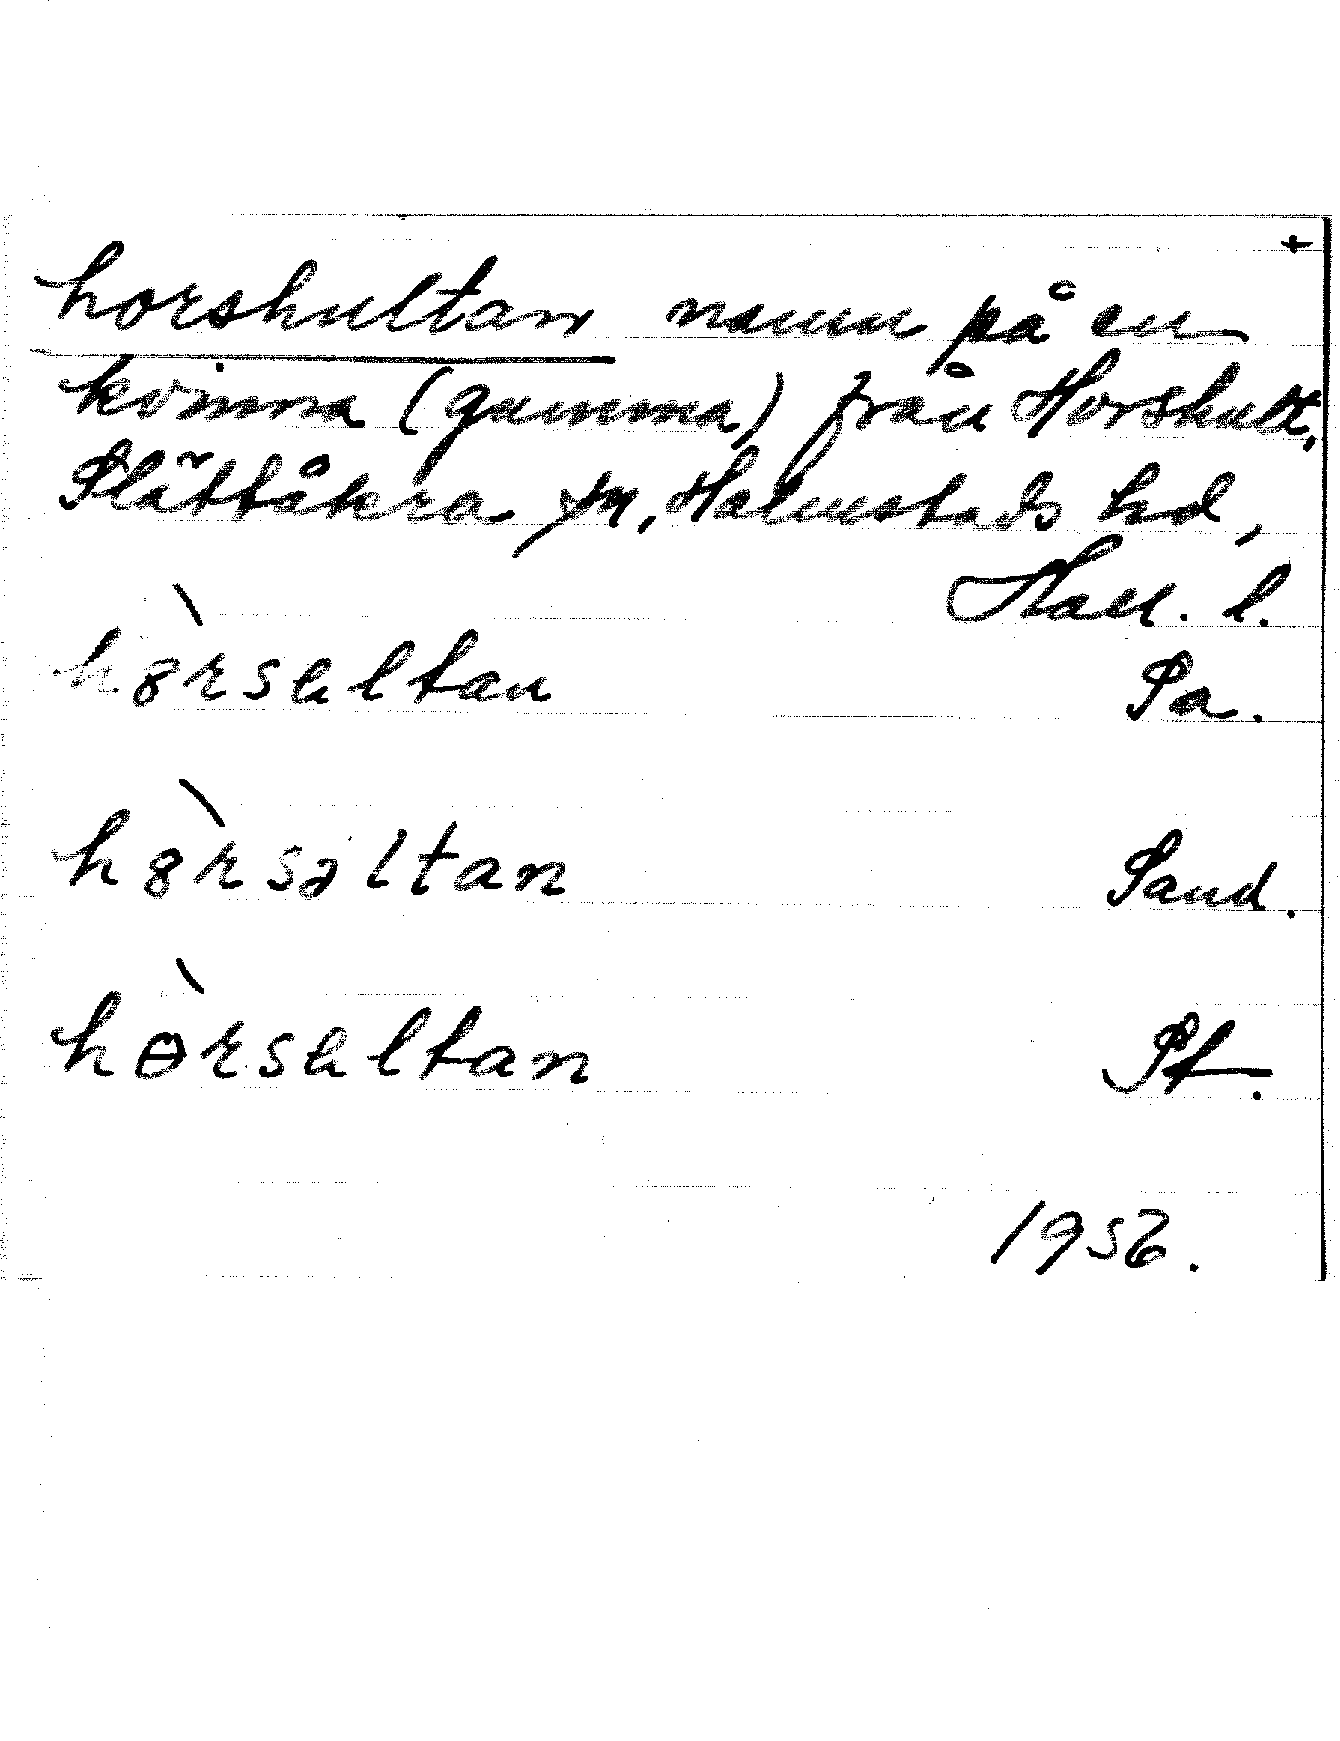 +
horshultan namn på en
kvinna (gumma) från Horshult,
Slättåkra sn, Halmstads hd,
Hall. l.
hòrsultan Sa.
hòrsəltan Sand.
hɵ̀rsultan St.
1956.